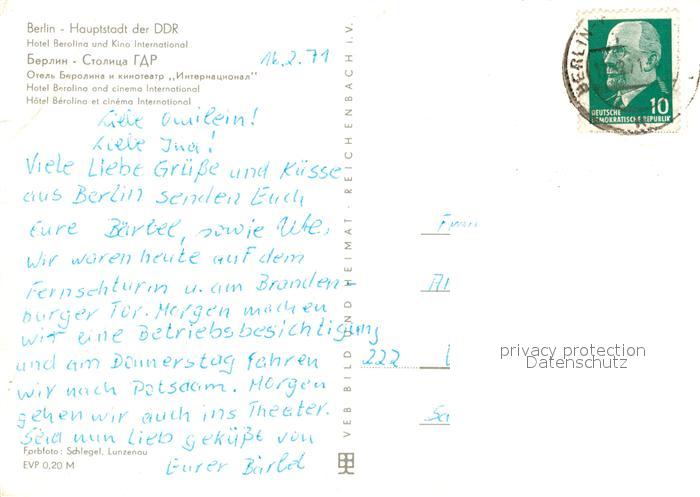 Berlin - Hauptstadt der DDR
Hotel Berolina und Kino International
Берлин - Столица ГДР
Отель Биролина и кинотеатр ,,Интернационал"
Hotel Berolina and cinema International
Hôtel Bérolina et cinéma International
16.2.71
Liebe Omilein!
Liebe Ina!
Viele Liebe Grüße und Küsse
aus Berlin senden Euch
Eure Bärbel, sowie Ute.
Wir waren heute auf dem
Fernsehturm u. am Branden-
burger Tor. Morgen machen
wir eine Betriebsbesichtigung
und am Donnerstag fahren
wir nach Potsdam. Morgen
gehen wir auch ins Theater.
Seid nun lieb geküßt von
Eurer Bärbel
Farbfoto: Schlegel, Lunzenau
EVP 0,20 M
VEB BILD UND HEIMAT · REICHENBACH I.V.
BERLIN
10
DEUTSCHE
DEMOKRATISCHE REPUBLIK
222
privacy protection
Datenschutz